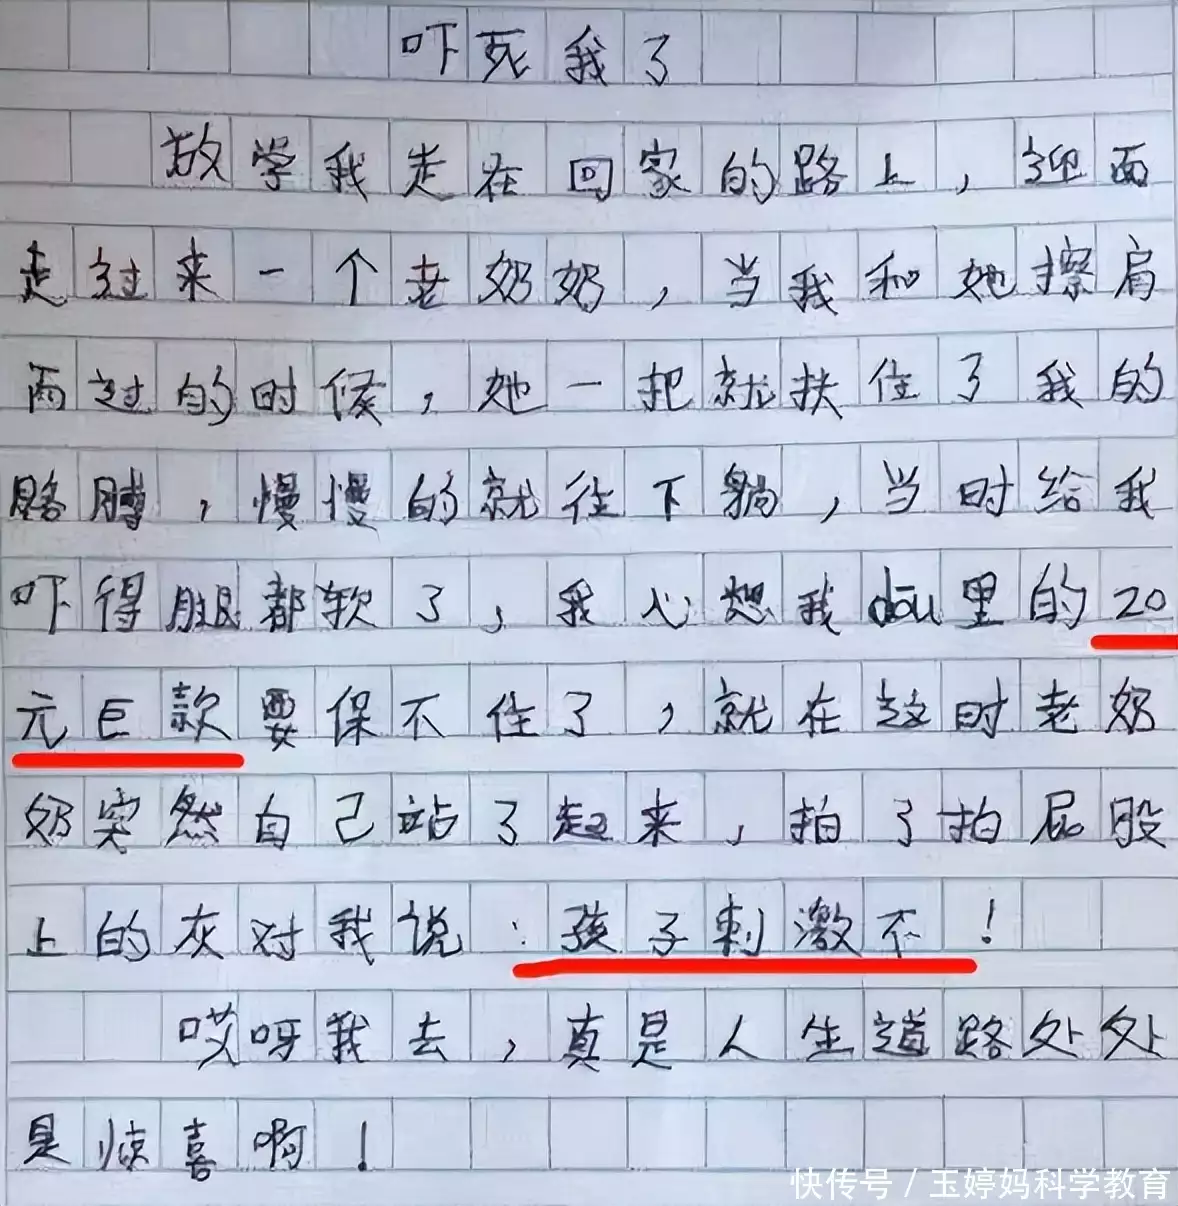 吓死我了
放学我走在回家的路上，迎面
走过来一个老奶奶，当我和她擦肩
而过的时候，她一把就扶住了我的
胳膊，慢慢的就往下躺，当时给我
吓得腿都软了，我心想我dōu里的20
元巨款要保不住了，就在这时老奶
奶突然自己站了起来，拍了拍屁股
上的灰对我说：孩子刺激不！
哎呀我去，真是人生道路处处
是惊喜啊！
快传号/玉婷妈科学教育